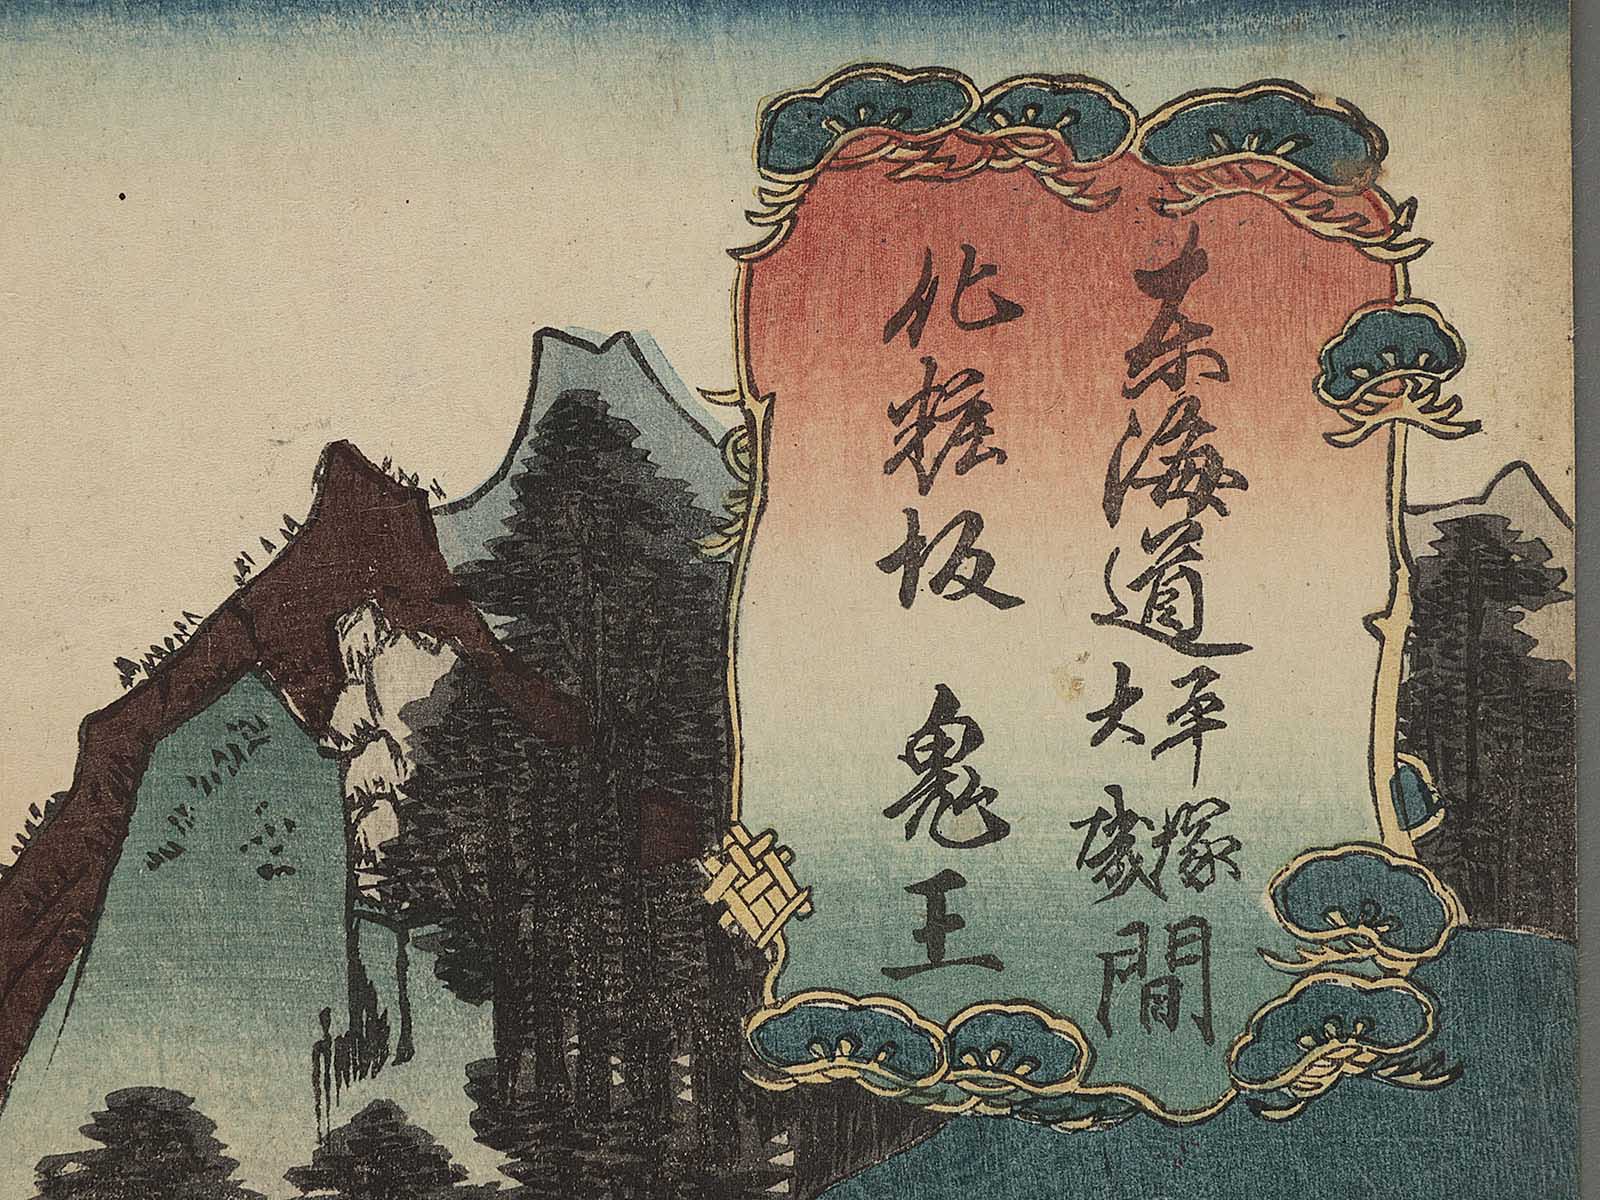 東海道平塚大磯間
化粧坂 鬼王